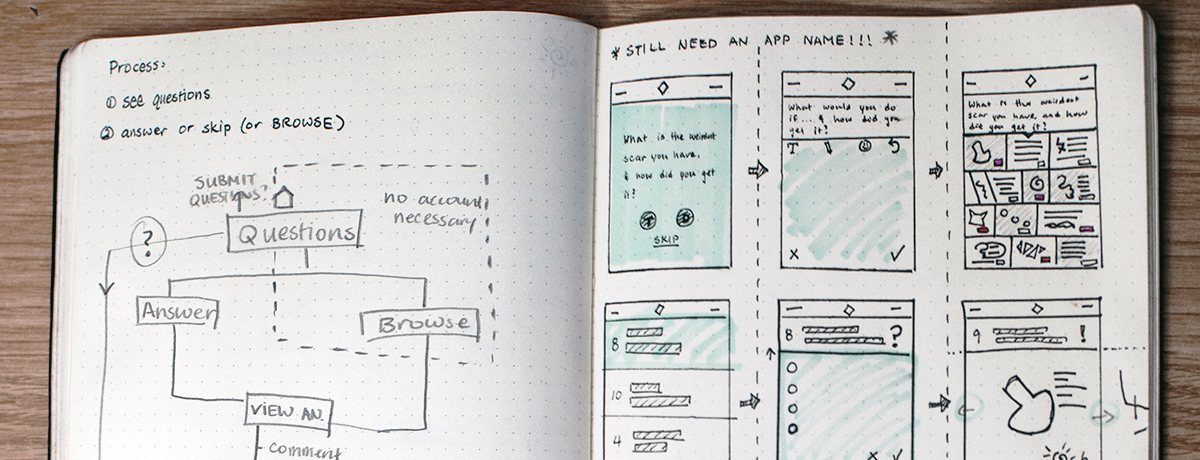 Process:
① see questions
② answer or skip (or BROWSE)
SUBMIT
QUESTIONS?
no account
necessary
?
Questions
Answer
Browse
VIEW AN.
- comment
* STILL NEED AN APP NAME!!! *
What is the weirdest
scar you have,
& how did you get
it?
SKIP
What would you do
if ... & how did you
get it?
T
x ✓
What is the weirdest
scar you have, and how
did you get it?
8
10
4
8 ?
x ✓
9 !